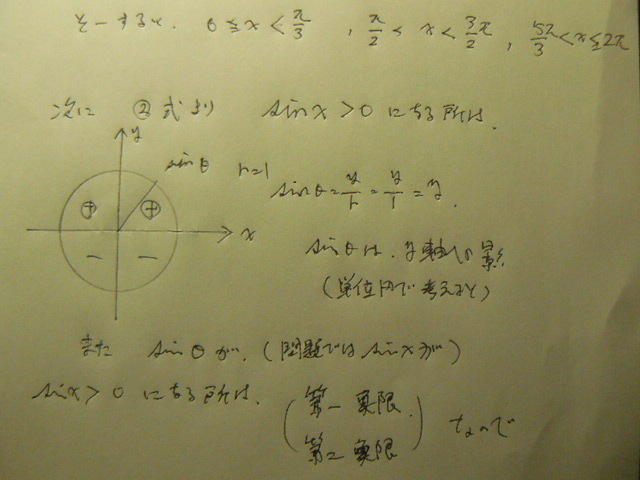 そーすると、 0 ≤ x < π/3 , π/2 < x < 3/2 π, 5π/3 < x ≤ 2π
次に ②式より sin x > 0 になる所は、
y
sin θ r=1
sin θ = y/r = y/1 = y.
⊕ ⊕
x
− −
sin θ は、y軸への影
(単位円で考えると)
また sin θ が、(問題では sin x が)
sin x > 0 になる所は、
(第一象限、
第二象限) なので